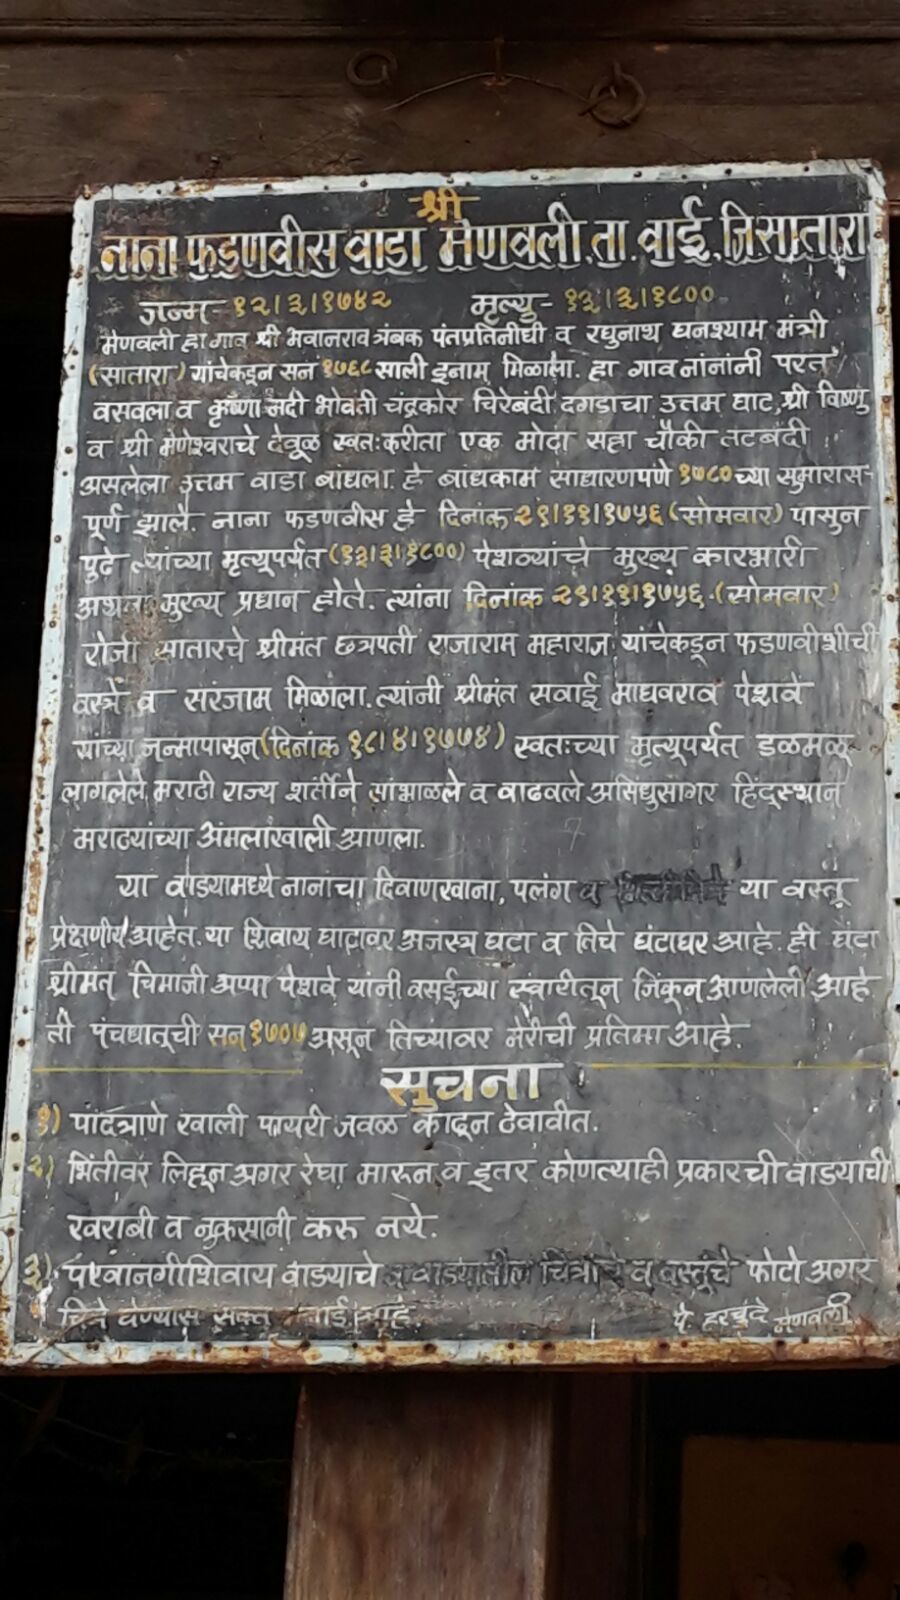 श्री
नाना फडणवीस वाडा मेणवली, ता. वाई, जि.सातारा
जन्म - १२।३।१७४२ मृत्यु - १३।३।१८००
मेणवली हा गाव श्री भवानराव त्रंबक पंतप्रतिनीधी व रघुनाथ घनश्याम मंत्री
(सातारा) यांचेकडून सन १७६८ साली इनाम मिळाला. हा गाव नांनांनी परत
वसवला व कृष्णा नदी भोवती चंद्रकोर चिरेबंदी दगडाचा उत्तम घाट, श्री विष्णु
व श्री मेणेश्वराचे देवूळ स्वतःकरीता एक मोठा सहा चौकी तटबंदी
असलेला उत्तम वाडा बांधला. हे बांधकाम साधारणपणे १७८० च्या सुमारास-
पूर्ण झाले. नाना फडणवीस हे दिनांक २९।११।१७५६ (सोमवार) पासुन
पुढे त्यांच्या मृत्यूपर्यंत (१३।३।१८००) पेशव्यांचे मुख्य कारभारी
अथवा मुख्य प्रधान होते. त्यांना दिनांक २९।११।१७५६ (सोमवार)
रोजी सातारचे श्रीमंत छत्रपती राजाराम महाराज यांचेकडून फडणवीशीची
वस्त्रे व सरंजाम मिळाला. त्यांनी श्रीमंत सवाई माधवराव पेशवे
यांच्या जन्मापासून (दिनांक १८।४।१७७४) स्वतःच्या मृत्यूपर्यंत डळमळू
लागलेले मराठी राज्य शर्तीने सांभाळले व वाढवले असिंधुसागर हिंदुस्थान
मराठयांच्या अंमलाखाली आणला.
या वाडयामध्ये नानांचा दिवाणखाना, पलंग व या वस्तू
प्रेक्षणीय आहेत. या शिवाय घाटावर अजस्त्र घटा व तिचे घंटाघर आहे. ही घंटा
श्रीमंत चिमाजी अप्पा पेशवे यांनी वसईच्या स्वारीतून जिंकून आणलेली आहे
ती पंचधातूची सन १७०७ असून तिच्यावर मेरीची प्रतिमा आहे.
सुचना
१) पादत्राणे खाली पायरी जवळ काढून ठेवावीत.
२) भिंतीवर लिहून अगर रेघा मारून व इतर कोणत्याही प्रकारची वाडयाची
खराबी व नुकसानी करु नये.
३) परवानगीशिवाय वाडयाचे व वाडयातील चित्रांचे व वस्तुंचे फोटो अगर
चित्रे घेण्यास सक्त मनाई आहे. पें. हरचुदे मेणवली